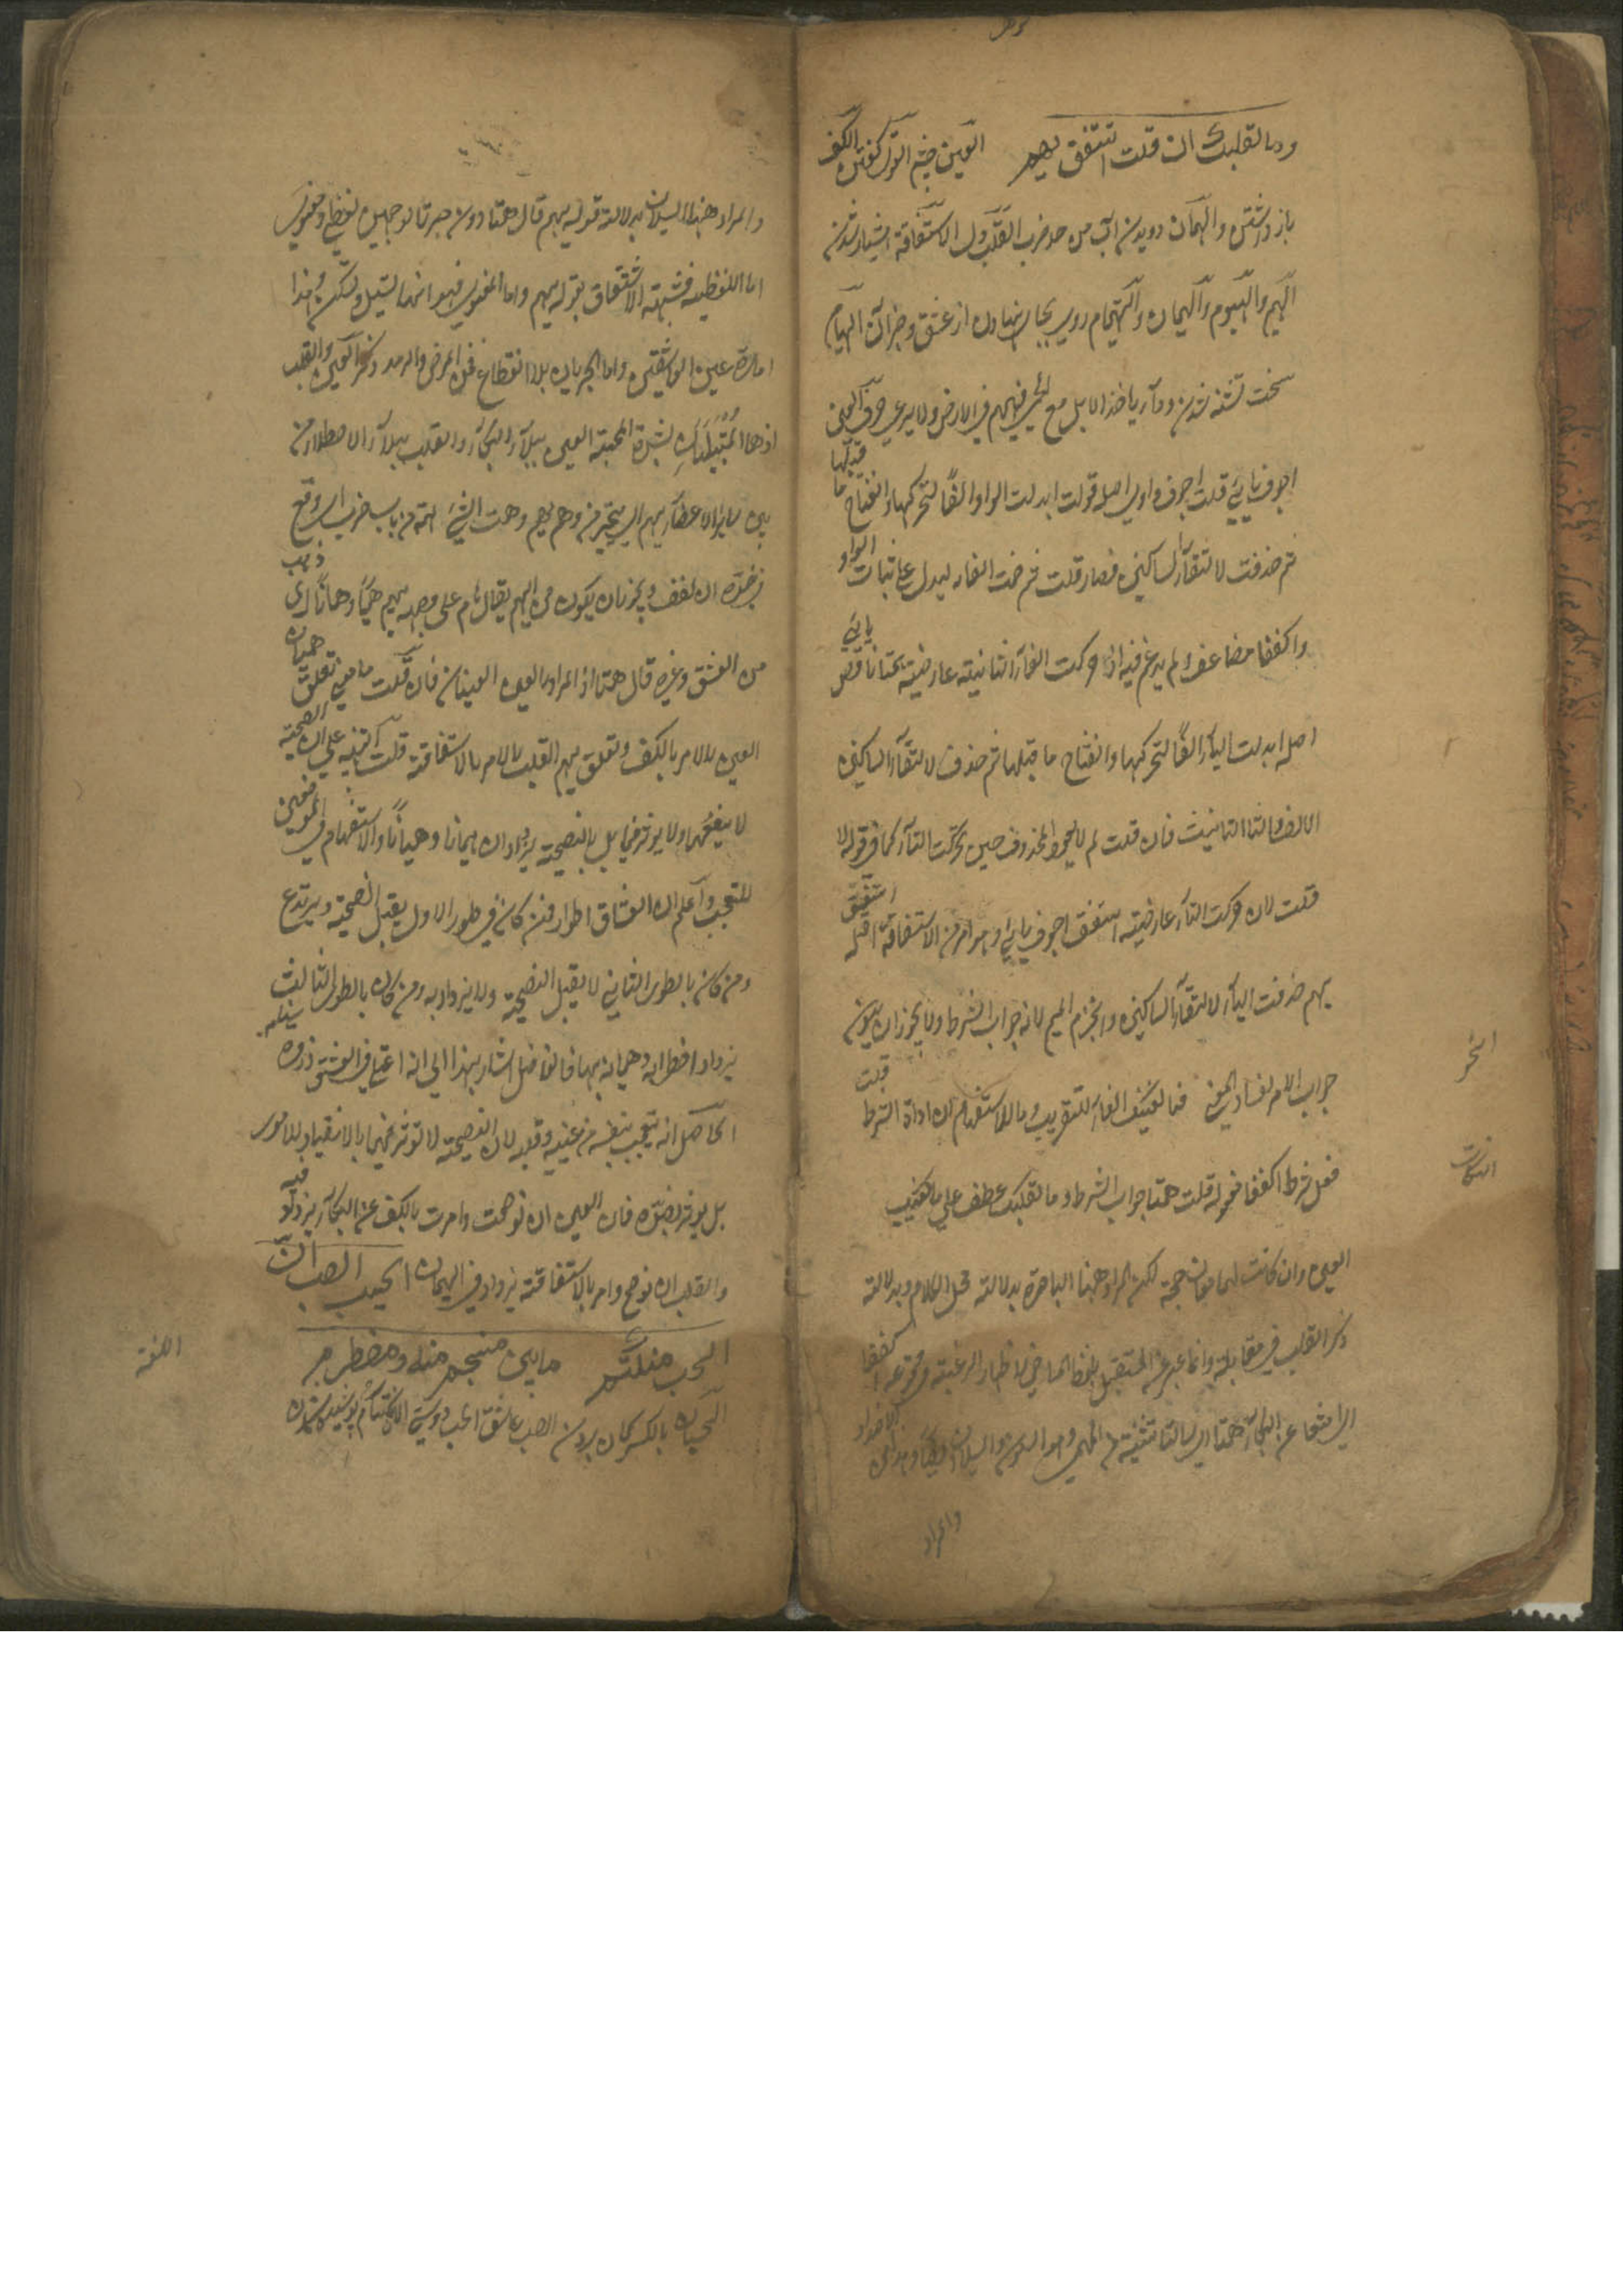 وما لقلبك ان قلت استفق يهم العين چشم القول گفتن الكف
باز داشتن والهمان دويدن آب من حد ضرب القلب دل الاستفاقة هشيار شدن
الهيم والهيوم والهيمان والتهيام روى بجاى نهادن از عشق وجز آن الهيام
سخت تشنه شدن وداء ياخذ الابل فيهيم في الارض ولا يرعى
اجوف يائي قلت اجوف واوى اصله قولت ابدلت الواو الفا لتحركها وانفتاح ما قبلها
ثم حذفت لالتقاء الساكنين فصار قلت ثم ضمت الفاء ليدل على الواو
واكففا مضاعف ولم يدغم فيه حركت الفاء الثانية عارضية همتا ناقص يائي
اصله ابدلت الياء الفا لتحركها وانفتاح ما قبلها ثم حذف لالتقاء الساكنين
الالف والتاء التانيث فان قلت لم لا يجئ المحذوف حين تحركت التاء كما في قولا
قلت لان حركت التاء عارضية استفق اجوف يائي وهو امر من الاستفاقة اصله استفيق
يهم حذفت الياء لالتقاء الساكنين وانجزم الميم لانه جواب الشرط ولا يجوز ان يكون
جواب الامر لفساد المعنى فما لعينيك الفاء للتفريع وما للاستفهام ان اداة الشرط قلت
فعل شرط اكففا مقوله قلت همتا جواب الشرط وما لقلبك عطف على ما لعينيك
العين وان كانت لها معان جمة لكن المراد ههنا الباصرة بدلالة محل الكلام وبدلالة
ذكر القلب في مقابلة وانما عبر عن المستقبل بلفظ الماضي لاظهار الرغبة في وقوعه اكففا
اى امتنعا عن البكاء همتا اى سالتا تثنية من الهمي وهو السيلان
والمراد
النحو
النكات
والمراد ههنا السيلان بدلالة قوله يهم قال همتا دون جرتا لوجهين لفظي ومعنوي
اما اللفظية فشبهة الاشتقاق بقوله يهم واما المعنوي فهو انهما تسيل وتسكن وهذا
امارة عين العاشقين واما الجريان بلا انقطاع فمن المرض والرمد وذكر العين والقلب
اذ هما المبتليان بشدة المحبة العين ببلاء البكاء والقلب ببلاء الاضطراب من
بين ساير الاعضاء يهم اى يتحير من وهم يهم وهمت الشئ اهمه من باب ضرب اى وقع
في خلده ان لفف ويجوز ان يكون من الهيم يقال هام على وجهه يهيم هيما وهيمانا اى ذهب
من العشق وغيره قال همتا اذ المراد بالعين العينان فان قلت ما معنى تعلق هميان
العين بالامر بالكف وتعلق يهم القلب بالامر بالاستفاقة قلت التنبيه على ان النصيحة
لا ينفعهما ولا يوثر فيهما بل بالنصيحة يزدادان هيمانا وهميانا والاستفهام في الموضعين
للتعجب واعلم ان العشاق اطوار فمن كان في طور الاول يقبل النصيحة ويرتدع
ومن كان بالطور الثاني لا يقبل النصيحة ولا يزداد به ومن كان بالطور الثالث
يزداد اضطرابه وهيمانه بها فالفاضل اشار بهذا الى انه اعتلى في العشق ذروة
الحاصل انه يتعجب بنفسه من عينيه وقلبه لان النصيحة لا توثر فيهما بالانقياد للامور
بل يوثر بضده فان العين ان نوصحت وامرت بالكف عن البكاء يزداد فيه
والقلب ان نوصح وامر بالاستفاقة يزداد في الهيمان ايحسب الصب ان
الحب منكتم ما بين منسجم منه ومضطرم
الحسبان بالكسر گمان بردن الصب عاشق الحب دوستى الانكتام پوشيده شدن
اللغة